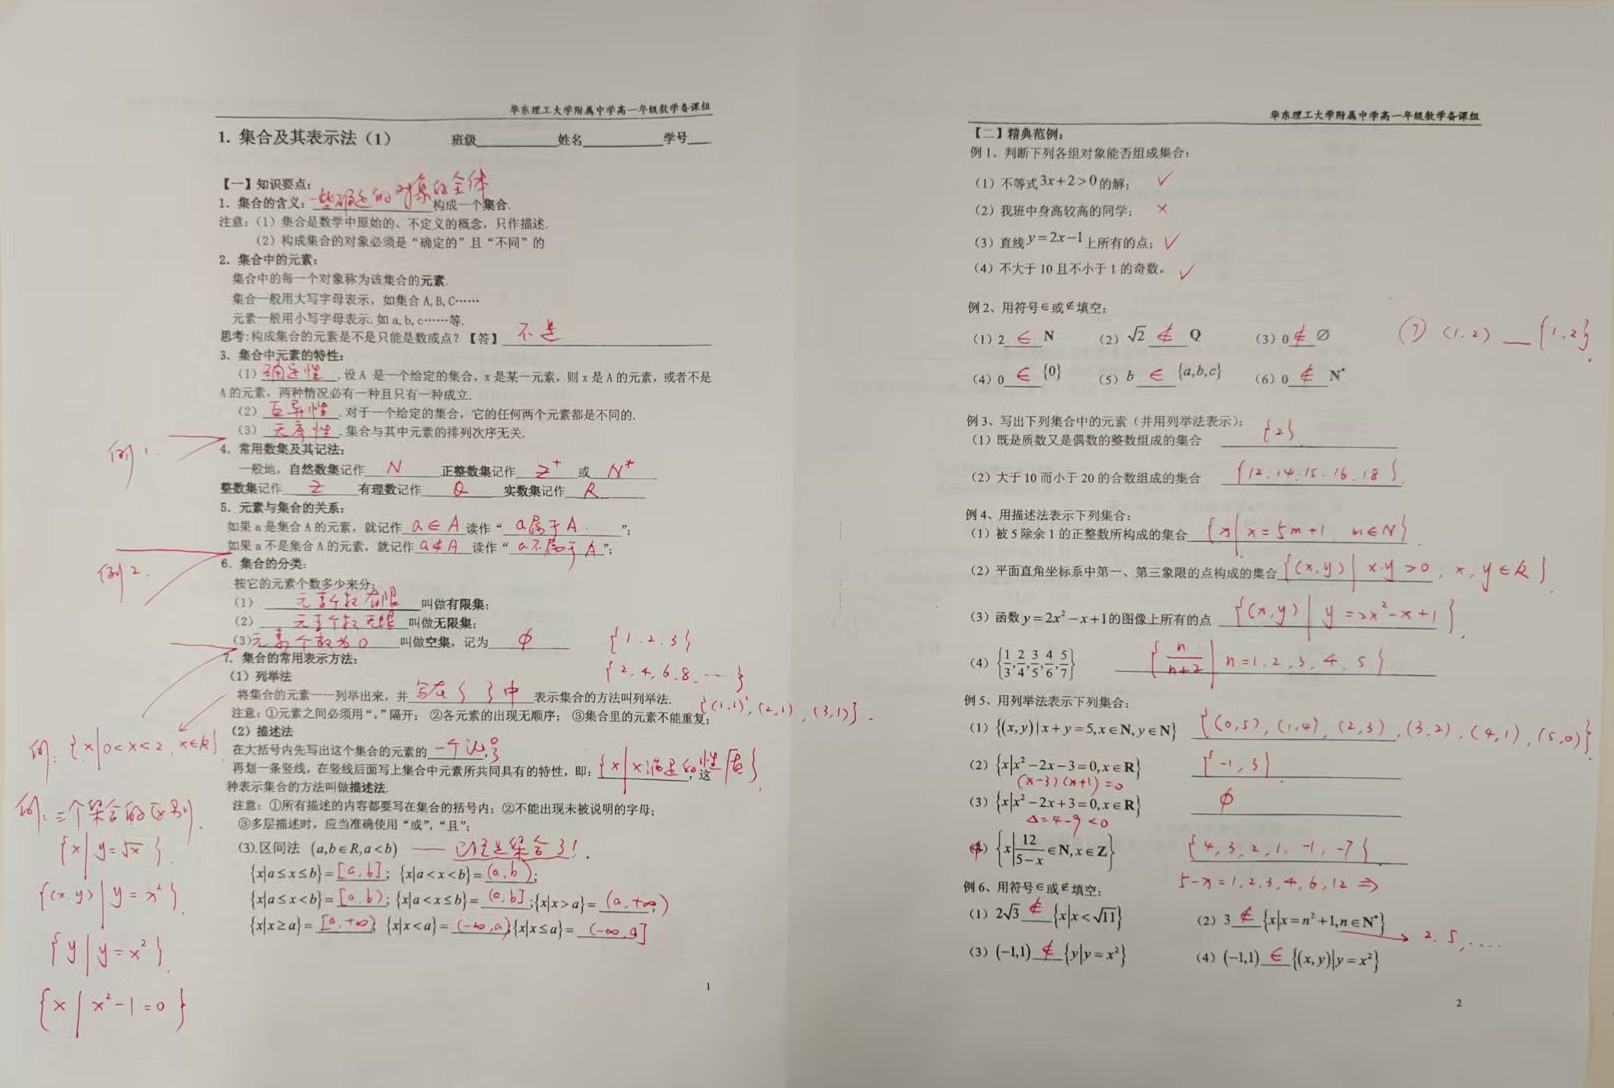 华东理工大学附属中学高一年级数学备课组
1. 集合及其表示法（1） 班级________ 姓名________ 学号___
【一】知识要点：
1. 集合的含义：一些确定的对象的全体构成一个集合.
注意：（1）集合是数学中原始的、不定义的概念，只作描述.
（2）构成集合的对象必须是“确定的”且“不同”的
2. 集合中的元素：
集合中的每一个对象称为该集合的元素.
集合一般用大写字母表示，如集合 A, B, C……
元素一般用小写字母表示, 如 a, b, c……等.
思考：构成集合的元素是不是只能是数或点？【答】 不是
3. 集合中元素的特性：
（1）确定性.设 A 是一个给定的集合，x 是某一元素，则 x 是 A 的元素，或者不是
A 的元素，两种情况必有一种且只有一种成立.
（2）互异性.对于一个给定的集合，它的任何两个元素都是不同的.
（3）无序性.集合与其中元素的排列次序无关.
例1.
4. 常用数集及其记法：
一般地，自然数集记作 N 正整数集记作 Z⁺ 或 N*
整数集记作 Z 有理数记作 Q 实数集记作 R
5. 元素与集合的关系：
如果 a 是集合 A 的元素，就记作 a∈A 读作“ a属于A. ”；
如果 a 不是集合 A 的元素，就记作 a∉A 读作“ a不属于A ”；
例2.
6. 集合的分类：
按它的元素个数多少来分：
（1） 元素个数有限 叫做有限集；
（2） 元素个数无限 叫做无限集；
（3）元素个数为0 叫做空集，记为 ϕ
{1.2.3}
{2,4,6,8.…}
7. 集合的常用表示方法：
（1）列举法
将集合的元素一一列举出来，并 写在{ }中 表示集合的方法叫列举法.
{(1,1),(2,1),(3,1)}.
注意：①元素之间必须用“，”隔开； ②各元素的出现无顺序； ③集合里的元素不能重复；
（2）描述法
例: {x|0<x<2, x∈R}
在大括号内先写出这个集合的元素的 一个记号
再划一条竖线，在竖线后面写上集合中元素所共同具有的特性，即：{x|x满足的性质}，这
种表示集合的方法叫做描述法.
注意：①所有描述的内容都要写在集合的括号内；②不能出现未被说明的字母；
③多层描述时，应当准确使用“或”，“且”；
例: 三个集合的区别.
{x|y=√x}.
{(x.y)|y=x²}.
{y|y=x²}.
{x|x²-1=0}
（3）.区间法 (a,b∈R,a<b) —— 已经是集合了!.
{x|a≤x≤b}=[a,b]; {x|a<x<b}=(a,b);
{x|a≤x<b}=[a,b); {x|a<x≤b}=(a,b];{x|x>a}=(a,+∞);
{x|x≥a}=[a,+∞) {x|x<a}=(-∞,a){x|x≤a}=(-∞,a]
1
华东理工大学附属中学高一年级数学备课组
【二】精典范例：
例 1、判断下列各组对象能否组成集合：
（1）不等式 3x+2>0 的解； ✓
（2）我班中身高较高的同学； ×
（3）直线 y=2x−1 上所有的点；✓
（4）不大于 10 且不小于 1 的奇数。 ✓
例 2、用符号∈或∉填空：
（1）2 ∈ N （2）√2 ∉ Q （3）0 ∉ ∅
(7) (1.2) __ {1.2}.
（4）0 ∈ {0} （5）b ∈ {a,b,c} （6）0 ∉ N*
例 3、写出下列集合中的元素（并用列举法表示）：
（1）既是质数又是偶数的整数组成的集合 {2}
（2）大于 10 而小于 20 的合数组成的集合 {12.14.15.16.18}.
例 4、用描述法表示下列集合：
（1）被 5 除余 1 的正整数所构成的集合 {x|x=5m+1, m∈N}.
（2）平面直角坐标系中第一、第三象限的点构成的集合 {(x,y)|x.y>0, x,y∈R}
（3）函数 y=2x²−x+1 的图像上所有的点 {(x,y)|y=2x²-x+1}.
（4）{1/3, 2/4, 3/5, 4/6, 5/7} {n/(n+2)|n=1,2,3,4,5}
例 5、用列举法表示下列集合：
（1）{(x,y)|x+y=5,x∈N,y∈N} {(0,5),(1,4),(2,3),(3,2),(4,1),(5,0)}.
（2）{x|x²−2x−3=0,x∈R} {-1,3}
(x-3)(x+1)=0
（3）{x|x²−2x+3=0,x∈R} ϕ
Δ=4-9<0
（4）{x|12/(5−x)∈N,x∈Z} {4,3,2,1,-1,-7}
5-x=1,2,3,4,6,12 ⇒
例 6、用符号∈或∉填空：
（1）2√3 ∉ {x|x<√11} （2）3 ∉ {x|x=n²+1,n∈N*} 2.5,….
（3）(−1,1) ∉ {y|y=x²} （4）(−1,1) ∈ {(x,y)|y=x²}
2